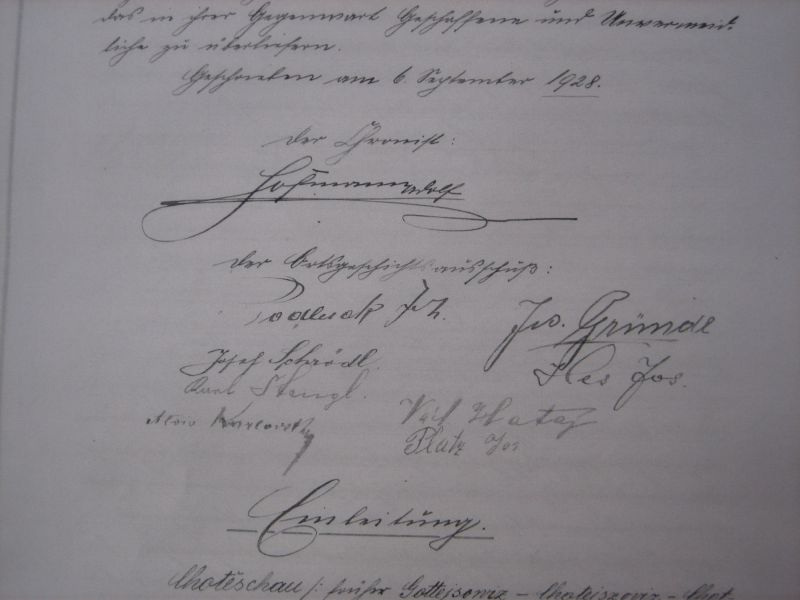 das in ihrer Gegenwart Geschaffene und Unvermeid-
liche zu überliefern.
Geschrieben am 6. September 1928.
Der Chronist:
Hofmann Adolf
Der Ortsgeschichtsausschuß:
Jos. Gründl
Josef Schrödl.
Iles Jos.
Karl Stengl.
Alois
Platz Jos
Einleitung.
Choteschau /: früher Gotteisowiz - Choteiszowiz - Chot